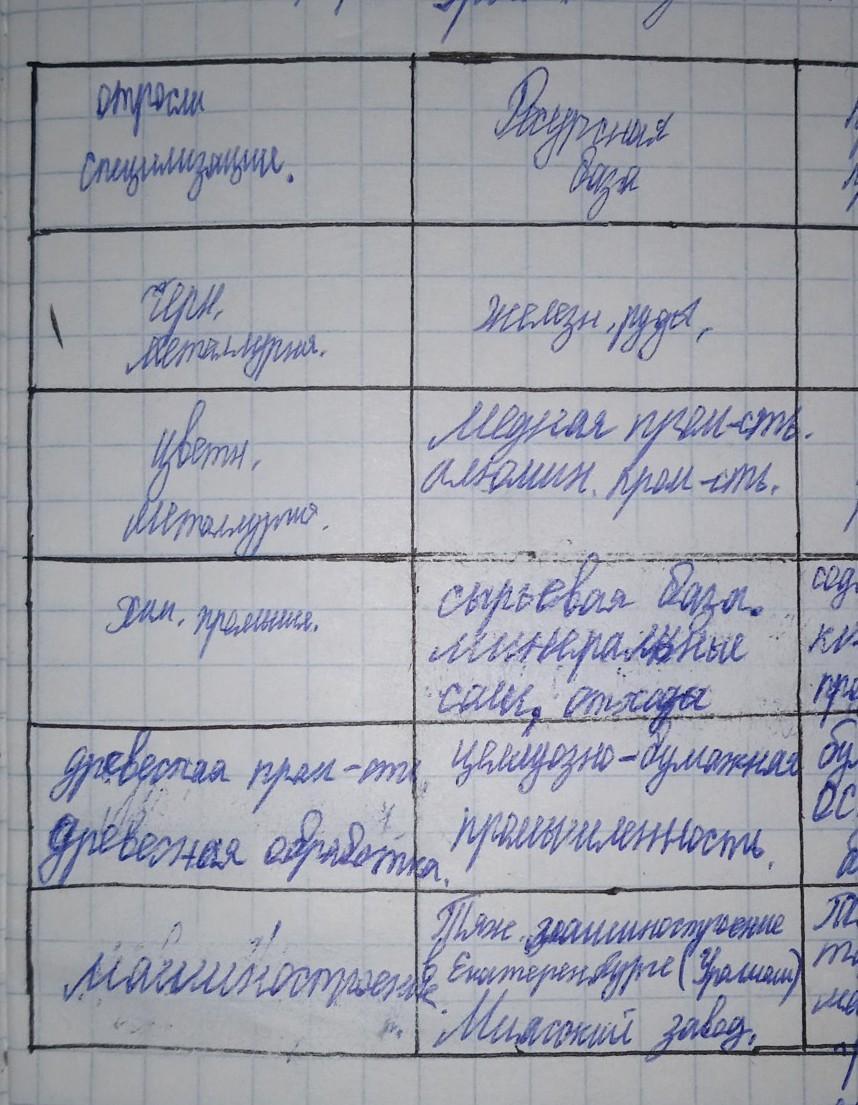 отросли
специлизации.
Ресурсная
база
Черн.
металлургия.
железн. руды.
цветн.
металлургия.
медная пром-сть.
алюмин. пром-сть.
хим. промышл.
сырьевая база.
минеральные
соли, отходы
сод
ки
про
древесная пром-сть
древесная обработка.
целлюозно-бумажная
промышленность.
бум
ос
машиностроение
Тяж. машиностроение
Екатеренбурге (Уралмаш)
Миасский завод.